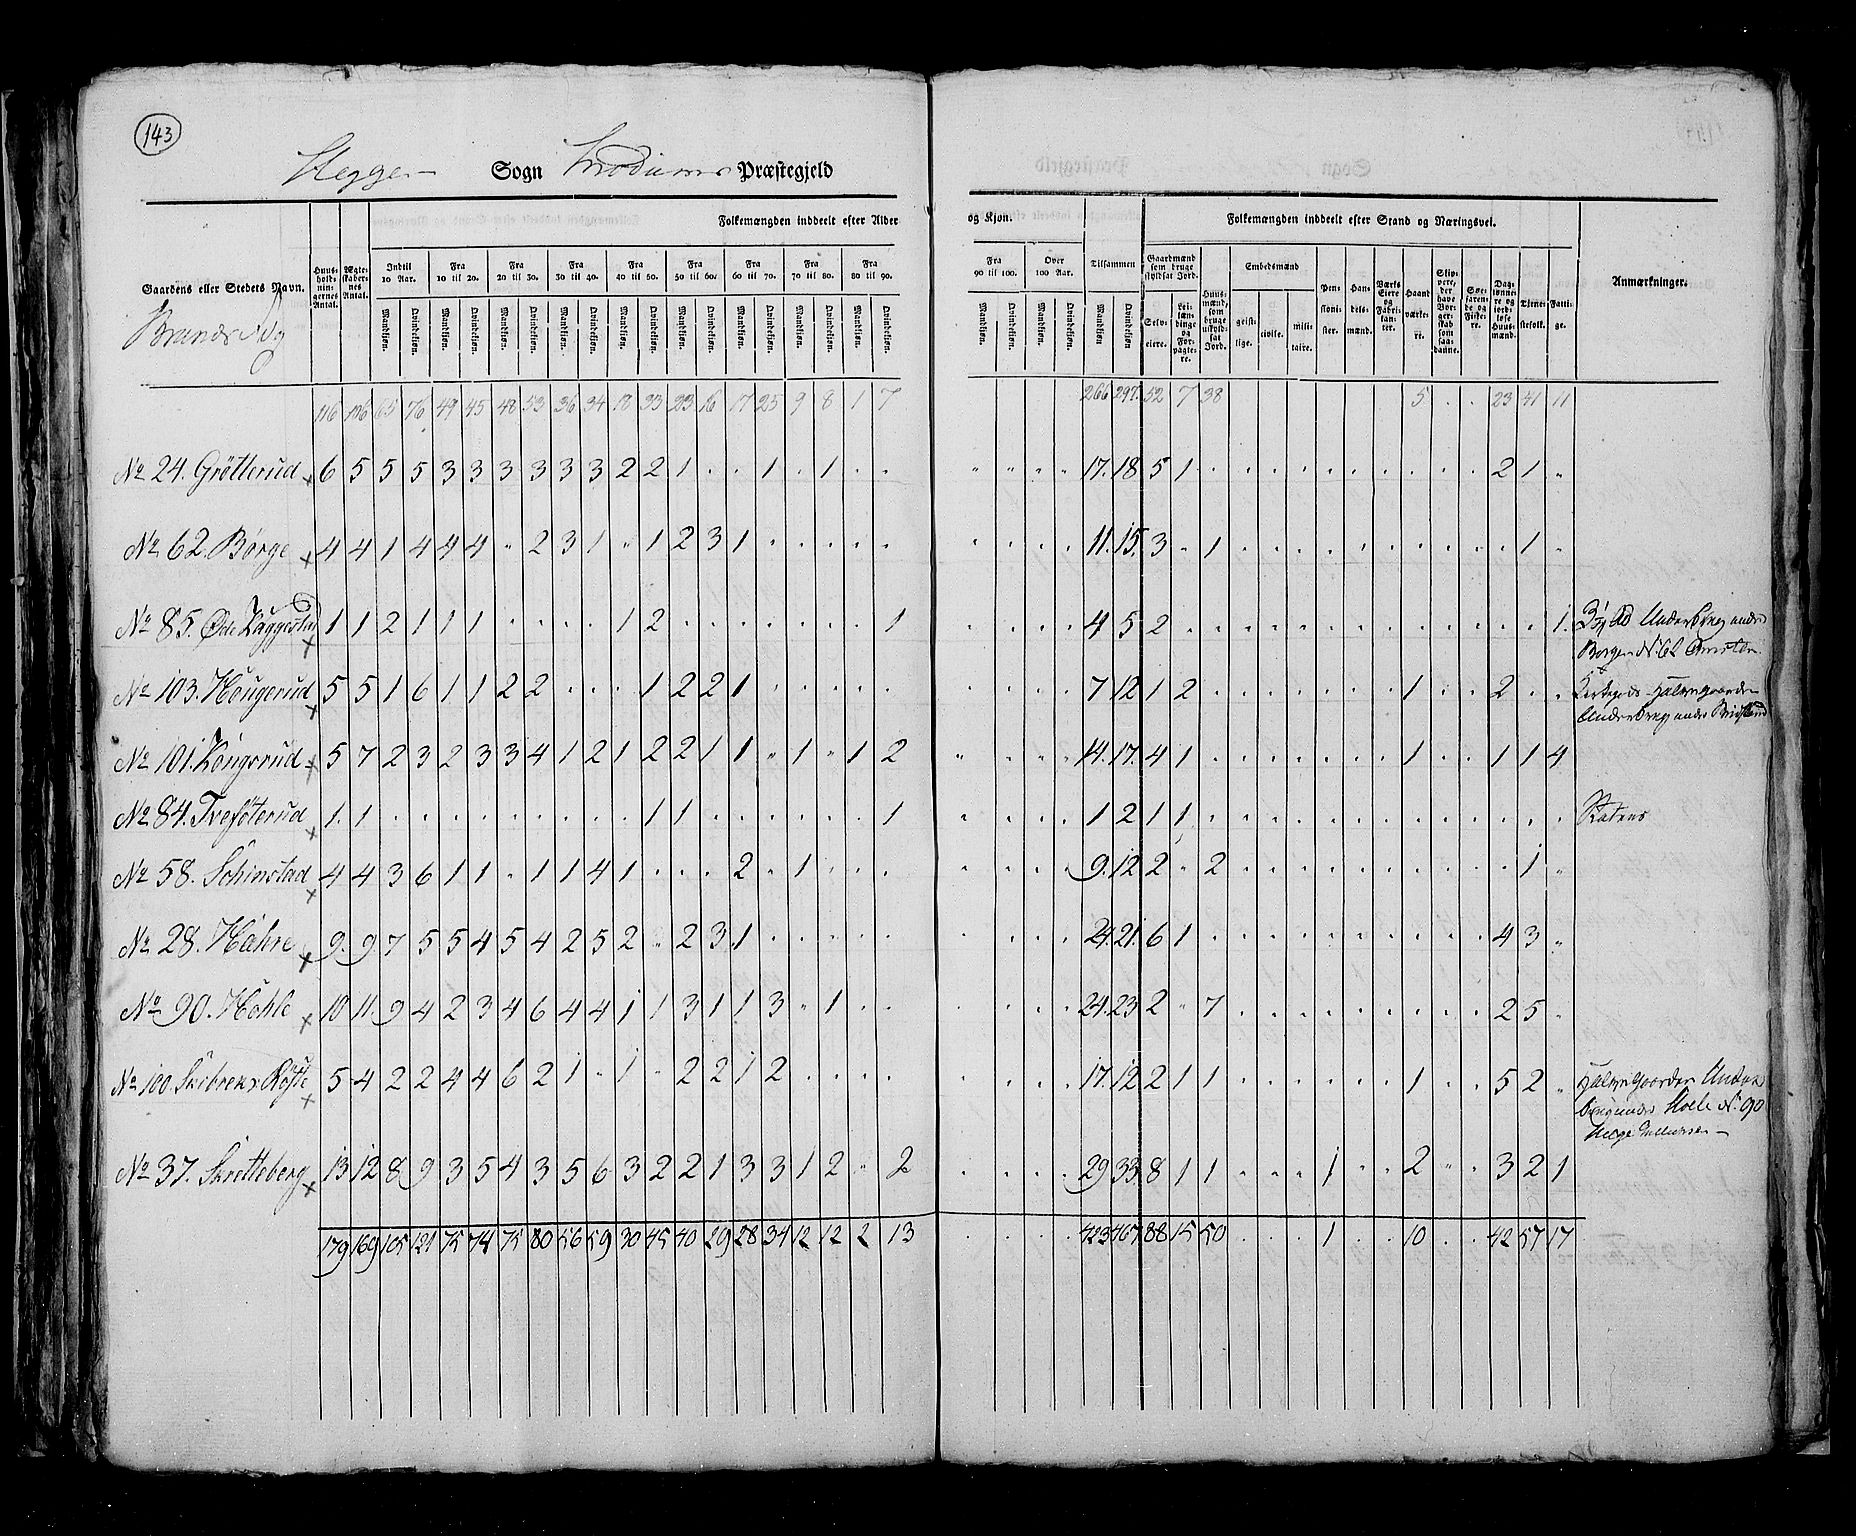 143
Sogn Præstegjeld
Folkemængden inddeelt efter Alder og Kjøn. Folkemængden inddeelt efter Stand og Næringsvei.
Gaardens eller Stedets Navn. Huus-holdnin-gernes Antal. Ægte-skaber-nes Antal. Indtil 10 Aar. Fra 10 til 20. Fra 20 til 30. Fra 30 til 40. Fra 40 til 50. Fra 50 til 60. Fra 60 til 70. Fra 70 til 80. Fra 80 til 90. Fra 90 til 100. Over 100 Aar. Tilsammen Gaardmænd som bruge skyldsat Jord. Huus-mænd, som bruge uskyld-sat Jord. Embedsmænd Pen-sioni-ster. Han-dels-mænd. Værks Eiere og Fabri-kan-ter. Haand værke-re. Slip-pere, der have Bor-ger-skab som saa-danne. Søe-faren-de og Fiske-re. Dag-lønne-re og jord-løse Huus-mænd. Tjene-stefolk. Fatti-ge. Anmærkninger.
Mandkjøn. Qvindekjøn. Selv-eiere. Lei-læn-dinge og For-pagte-re. geist-lige. civile. mili-taire.
116 106 65 76 49 45 48 53 36 34 18 33 23 16 17 25 9 8 1 7 266 297. 52 7 38 5 . . 23 41 11
No 24. Grötterud 6 5 5 5 3 3 3 3 3 3 2 2 1 . . 1 . 1 . . 17. 18 5 1 2 1
No 62. Börge 4 4 1 4 4 4 . 2 3 1 . 1 2 3 1 . . . . . 11. 15. 3 . 1 1
No 85. Øde Kaggestad 1 1 2 1 1 1 . . . . 1 2 . . . . . . . 1 4 5 2 1. Underbrug under
Borgen No 62
No 103. Hougerud 5 5 1 6 1 1 2 2 . . . 1 2 2 1 . . . . . 7 12 1 2 1 . . 2 . .
Underbrug under
No 101. Kongsrud 5 7 2 3 2 3 3 4 1 2 1 2 2 1 1 . 1 . 1 2 14. 17. 4 1 1 . . 1 1 4
No 84. Tveföterud 1. 1 . . . . . . . . . 1 1 . . . . . . 1 1 2 1 1
No 58. Schinstad 4 4 3 6 1 1 . 1 1 4 1 . . . 2 . 1 . . . 9. 12 2 . 2 1
No 28. Hähre 9. 9 7 5 5 4 5 4 2 5 2 . 2 3 1 . . . . . 24. 21. 6 1 4 3
No 90. Hohle 10 11. 9 4 2 3 4 6 4 4 1 1 3 1 1 3 . 1 . . 24. 23 2 . 7 2 5
No 100. 5 4 2 2 4 4 6 2 1 . 1 . 2 2 1 2 . . . . 17. 12 2 1 1 1 . . 5 2
No. 90
No 37. Skretteberg 13 12 8 9 3 5 4 3 5 6 3 2 2 1 3 3 1 2 . 2 29 33. 8 1 1 1 2 3 2 1
179 169 105 121 75 74 75 80 56 59 30 45 40 29 28 34 12 12 2 13 423 467 88 15 50 1 10 . . 42 57 17